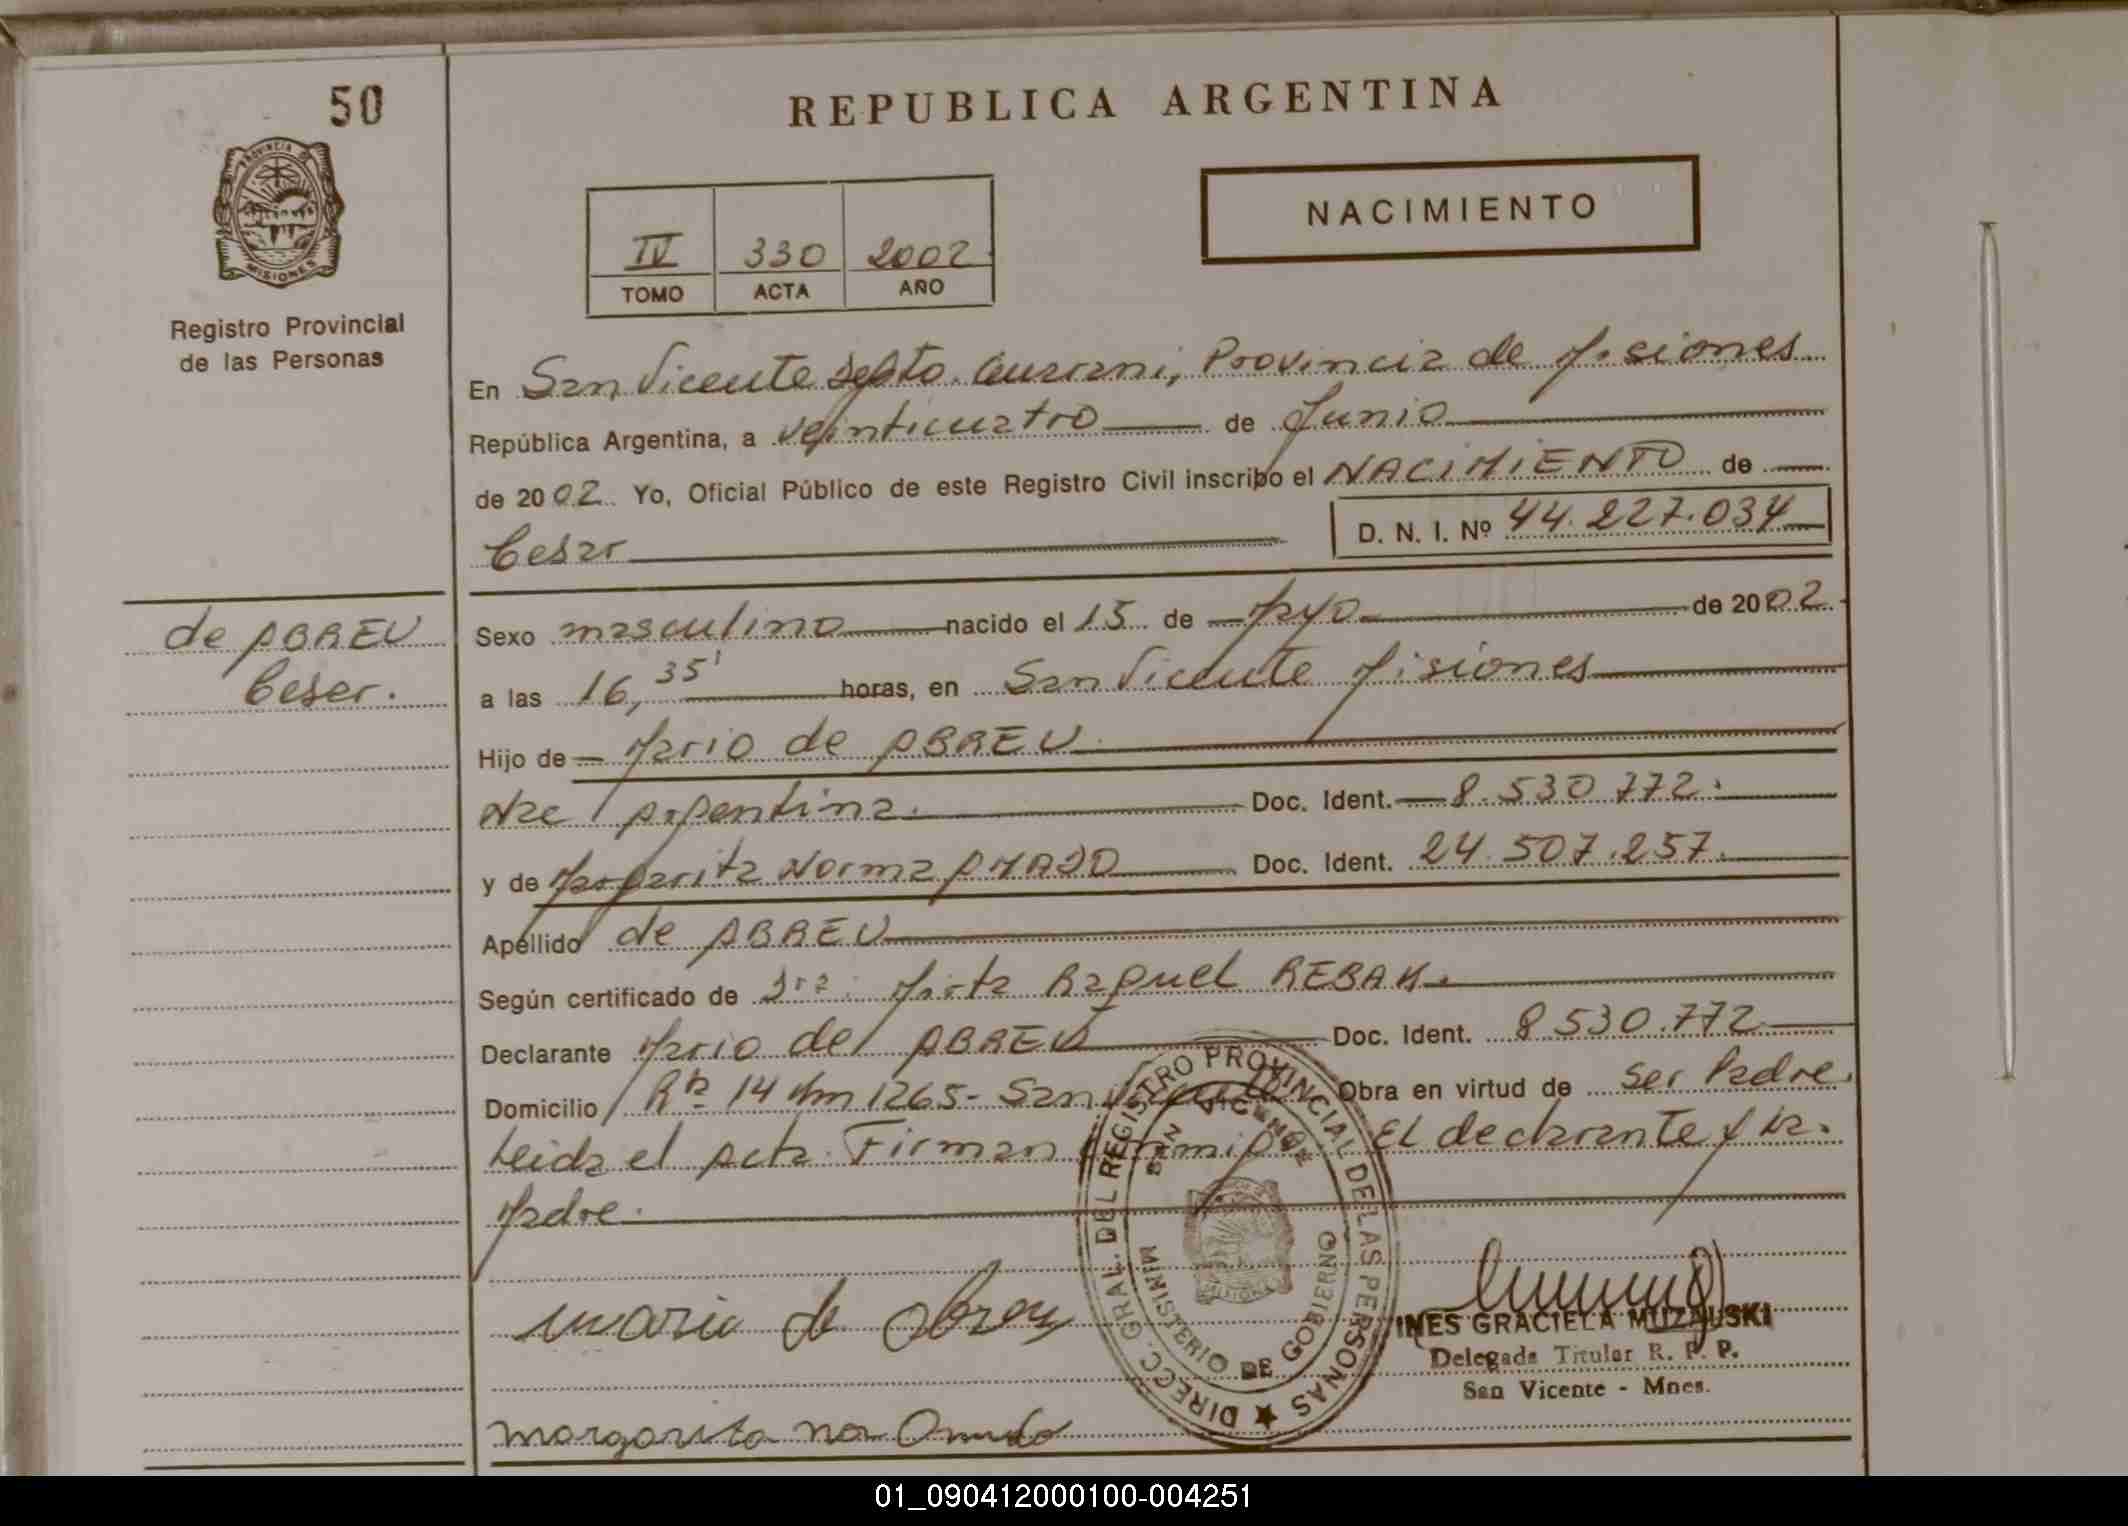 50
REPUBLICA ARGENTINA
PROVINCIA DE
MISIONES
Registro Provincial
de las Personas
NACIMIENTO
IV 330 2002
TOMO ACTA AÑO
En San Vicente Depto. Guarani, Provincia de Misiones
República Argentina, a veinticuatro de Junio
de 2002. Yo, Oficial Público de este Registro Civil inscribo el NACIMIENTO de
Cesar D. N. I. Nº 44.227.034
de ABREU
Cesar.
Sexo masculino nacido el 15 de Mayo de 2002
a las 16,35' horas, en San Vicente Misiones
Hijo de Mario de ABREU
Nac Argentina. Doc. Ident. 8.530.772.
y de Margarita Norma Doc. Ident. 24.507.257.
Apellido de ABREU
Según certificado de Dra. Mirta Raquel
Declarante Mario de ABREU Doc. Ident. 8.530.772
Domicilio Rta 14 Km 1265- San Vicente Obra en virtud de ser Padre.
Leida el Acta. Firman Conmigo El declarante y la
Madre.
DIRECC. GRAL. DEL REGISTRO PROVINCIAL DE LAS PERSONAS
SAN VICENTE
MINISTERIO DE GOBIERNO
MISIONES
mario de Abreu
INES GRACIELA MUZAUSKI
Delegada Titular R. P. P.
San Vicente - Mnes.
margarita
01_090412000100-004251